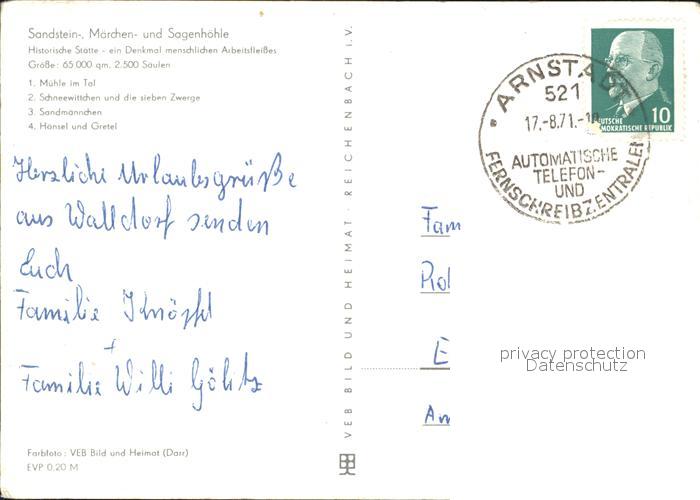 Sandstein-, Märchen- und Sagenhöhle
Historische Stätte - ein Denkmal menschlichen Arbeitsfleißes
Größe: 65 000 qm, 2.500 Säulen
1. Mühle im Tal
2. Schneewittchen und die sieben Zwerge
3. Sandmännchen
4. Hänsel und Gretel
Herzliche Urlaubsgrüße
aus Walldorf senden
Euch
Familie Knöpfel
+
Familie Willi Göhltz
Farbfoto: VEB Bild und Heimat (Darr)
EVP 0,20 M
VEB BILD UND HEIMAT · REICHENBACH i.V.
ARNSTADT
521
17.-8.71.-18
AUTOMATISCHE
TELEFON-
UND
FERNSCHREIBZENTRALEN
10
DEUTSCHE
DEMOKRATISCHE REPUBLIK
Fam
E
privacy protection
Datenschutz